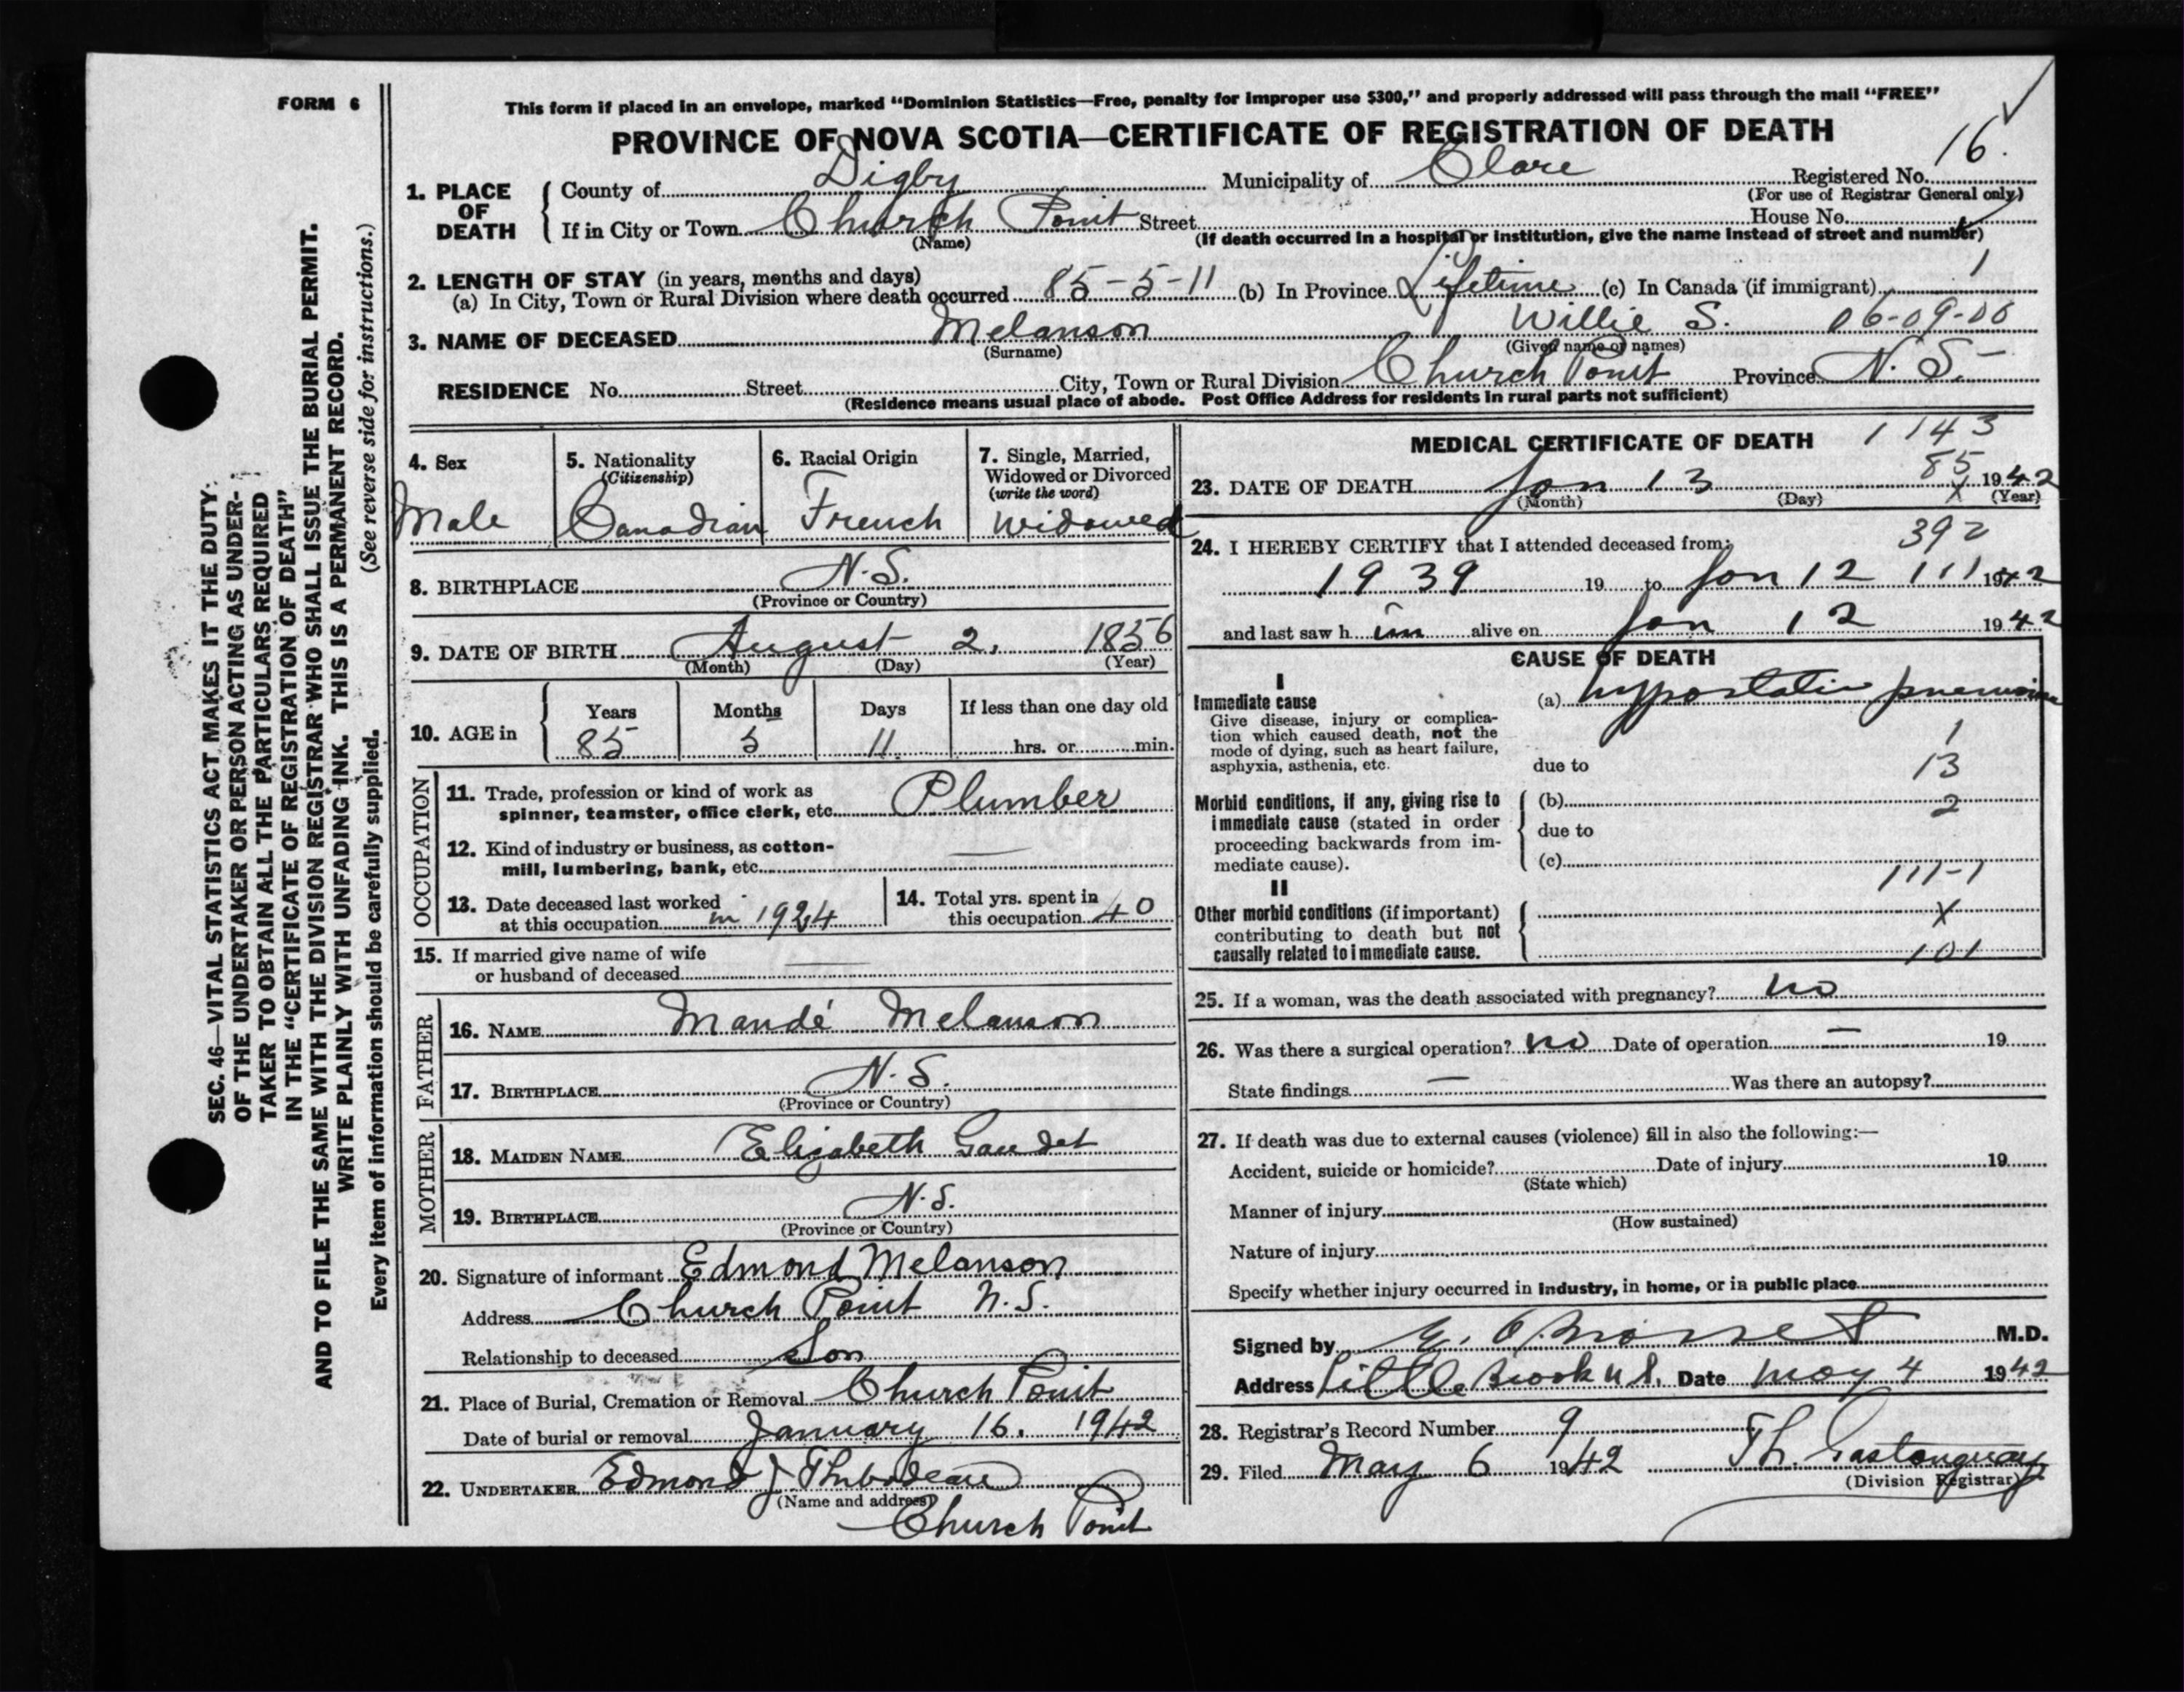 FORM 6
SEC. 46—VITAL STATISTICS ACT MAKES IT THE DUTY
OF THE UNDERTAKER OR PERSON ACTING AS UNDER-
TAKER TO OBTAIN ALL THE PARTICULARS REQUIRED
IN THE "CERTIFICATE OF REGISTRATION OF DEATH"
AND TO FILE THE SAME WITH THE DIVISION REGISTRAR WHO SHALL ISSUE THE BURIAL PERMIT.
WRITE PLAINLY WITH UNFADING INK. THIS IS A PERMANENT RECORD.
Every item of information should be carefully supplied. (See reverse side for instructions.)
This form if placed in an envelope, marked "Dominion Statistics—Free, penalty for improper use $300," and properly addressed will pass through the mail "FREE"
PROVINCE OF NOVA SCOTIA—CERTIFICATE OF REGISTRATION OF DEATH
1. PLACE OF DEATH County of Digby Municipality of Clare Registered No. 16.
(For use of Registrar General only)
If in City or Town Church Point Street House No.
(Name) (If death occurred in a hospital or institution, give the name instead of street and number)
2. LENGTH OF STAY (in years, months and days)
(a) In City, Town or Rural Division where death occurred 85-5-11 (b) In Province Lifetime (c) In Canada (if immigrant) 1
3. NAME OF DECEASED Melanson Willie S. 06-09-00
(Surname) (Given name or names)
RESIDENCE No. Street City, Town or Rural Division Church Point Province N.S.
(Residence means usual place of abode. Post Office Address for residents in rural parts not sufficient)
4. Sex 5. Nationality 6. Racial Origin 7. Single, Married,
(Citizenship) Widowed or Divorced
(write the word)
Male Canadian French Widowed
8. BIRTHPLACE N.S.
(Province or Country)
9. DATE OF BIRTH August 2, 1856
(Month) (Day) (Year)
10. AGE in Years Months Days If less than one day old
85 5 11 hrs. or min.
OCCUPATION
11. Trade, profession or kind of work as
spinner, teamster, office clerk, etc. Plumber
12. Kind of industry or business, as cotton-
mill, lumbering, bank, etc. —
13. Date deceased last worked
at this occupation in 1924
14. Total yrs. spent in
this occupation 40
15. If married give name of wife
or husband of deceased —
FATHER
16. NAME Mandé Melanson
17. BIRTHPLACE N.S.
(Province or Country)
MOTHER
18. MAIDEN NAME Elizabeth Gaudet
19. BIRTHPLACE N.S.
(Province or Country)
20. Signature of informant Edmond Melanson
Address Church Point N.S.
Relationship to deceased Son
21. Place of Burial, Cremation or Removal Church Point
Date of burial or removal January 16, 1942
22. UNDERTAKER Edmond J Thibodeau
(Name and address)
Church Point
MEDICAL CERTIFICATE OF DEATH 1143
85
23. DATE OF DEATH Jan 13 1942
(Month) (Day) (Year)
392
24. I HEREBY CERTIFY that I attended deceased from:
1939 19 to Jan 12 111 1942
and last saw him alive on Jan 12 1942
CAUSE OF DEATH
I
Immediate cause (a) hypostatic pneumonia
Give disease, injury or complica-
tion which caused death, not the
mode of dying, such as heart failure,
asphyxia, asthenia, etc.
1
due to 13
Morbid conditions, if any, giving rise to
immediate cause (stated in order
proceeding backwards from im-
mediate cause).
(b) 2
due to
(c)
111-1
II
Other morbid conditions (if important)
contributing to death but not
causally related to immediate cause.
X
101
25. If a woman, was the death associated with pregnancy? no
26. Was there a surgical operation? no Date of operation — 19
State findings — Was there an autopsy?
27. If death was due to external causes (violence) fill in also the following:—
Accident, suicide or homicide? Date of injury 19
(State which)
Manner of injury
(How sustained)
Nature of injury
Specify whether injury occurred in industry, in home, or in public place
Signed by M.D.
Address Little Brook N S. Date May 4 1942
28. Registrar's Record Number 9
29. Filed May 6 1942 Th. Gastonguay
(Division Registrar)